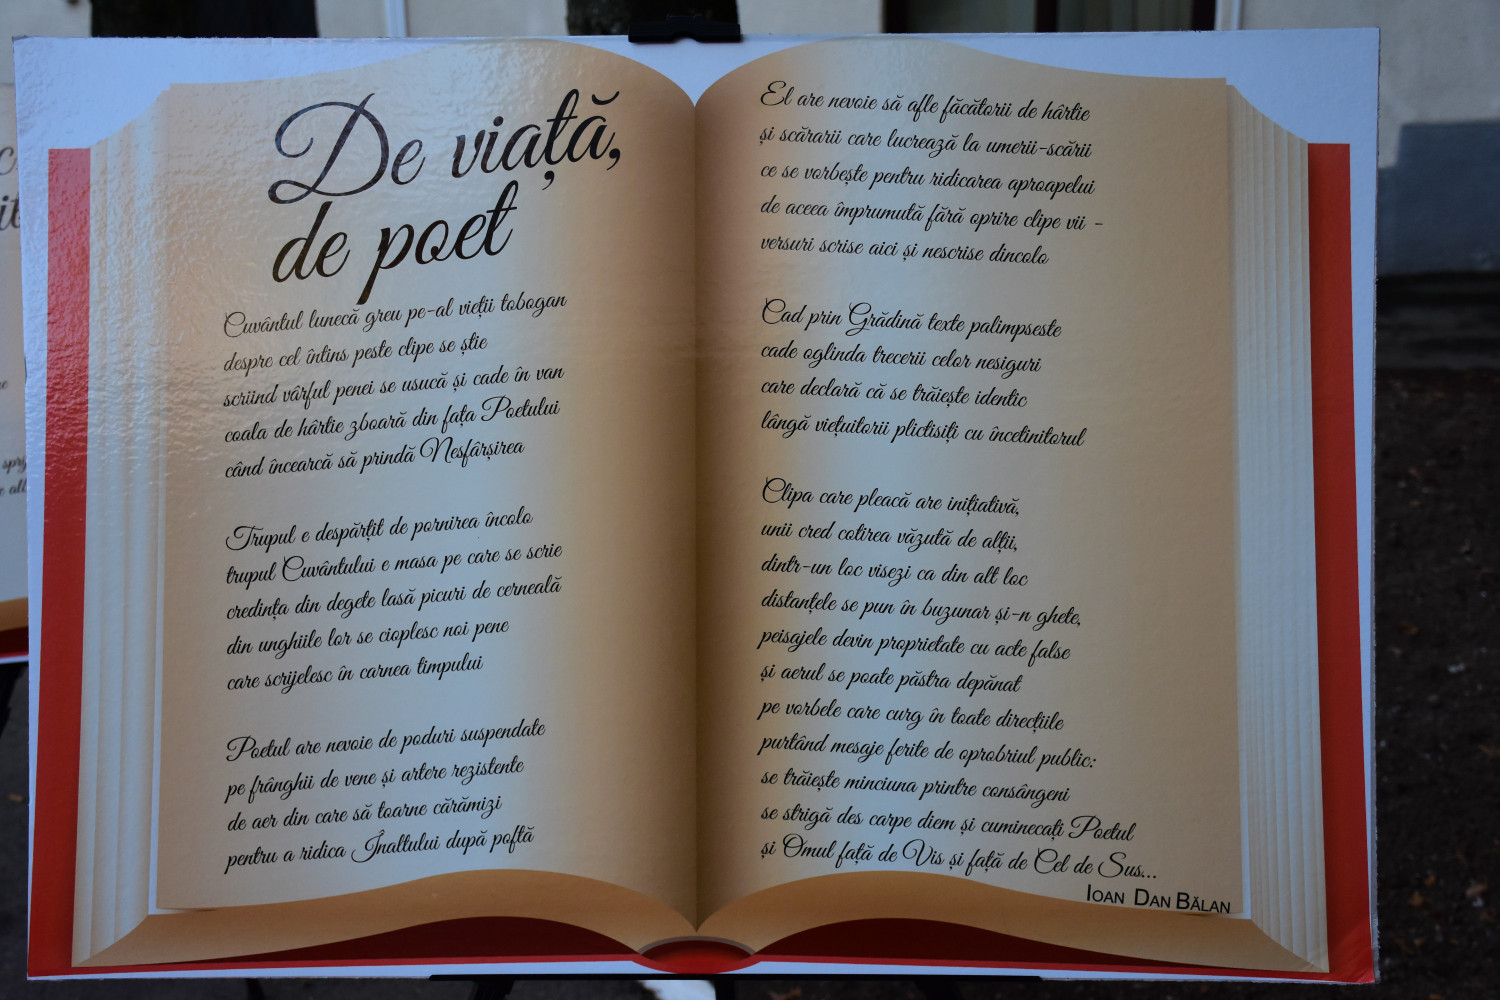 De viață,
de poet
Cuvântul lunecă greu pe-al vieții tobogan
despre cel întins peste clipe se știe
scriind vârful penei se usucă și cade în van
coala de hârtie zboară din fața Poetului
când încearcă să prindă Nesfârșirea
Trupul e despărțit de pornirea încolo
trupul Cuvântului e masa pe care se scrie
credința din degete lasă picuri de cerneală
din unghiile lor se cioplesc noi pene
care scrijelesc în carnea timpului
Poetul are nevoie de poduri suspendate
pe frânghii de vene și artere rezistente
de aer din care să toarne cărămizi
pentru a ridica Înaltului după poftă
El are nevoie să afle făcătorii de hârtie
și scărarii care lucrează la umerii-scării
ce se vorbește pentru ridicarea aproapelui
de aceea împrumută fără oprire clipe vii -
versuri scrise aici și nescrise dincolo
Cad prin Grădină texte palimpseste
cade oglinda trecerii celor nesiguri
care declară că se trăiește identic
lângă viețuitorii plictisiți cu încetinitorul
Clipa care pleacă are inițiativă,
unii cred cotirea văzută de alții,
dintr-un loc visezi ca din alt loc
distanțele se pun în buzunar și-n ghete,
peisajele devin proprietate cu acte false
și aerul se poate păstra depănat
pe vorbele care curg în toate direcțiile
purtând mesaje ferite de oprobriul public:
se trăiește minciuna printre consângeni
se strigă des carpe diem și cuminecați Poetul
și Omul față de Vis și față de Cel de Sus...
Ioan Dan Bălan